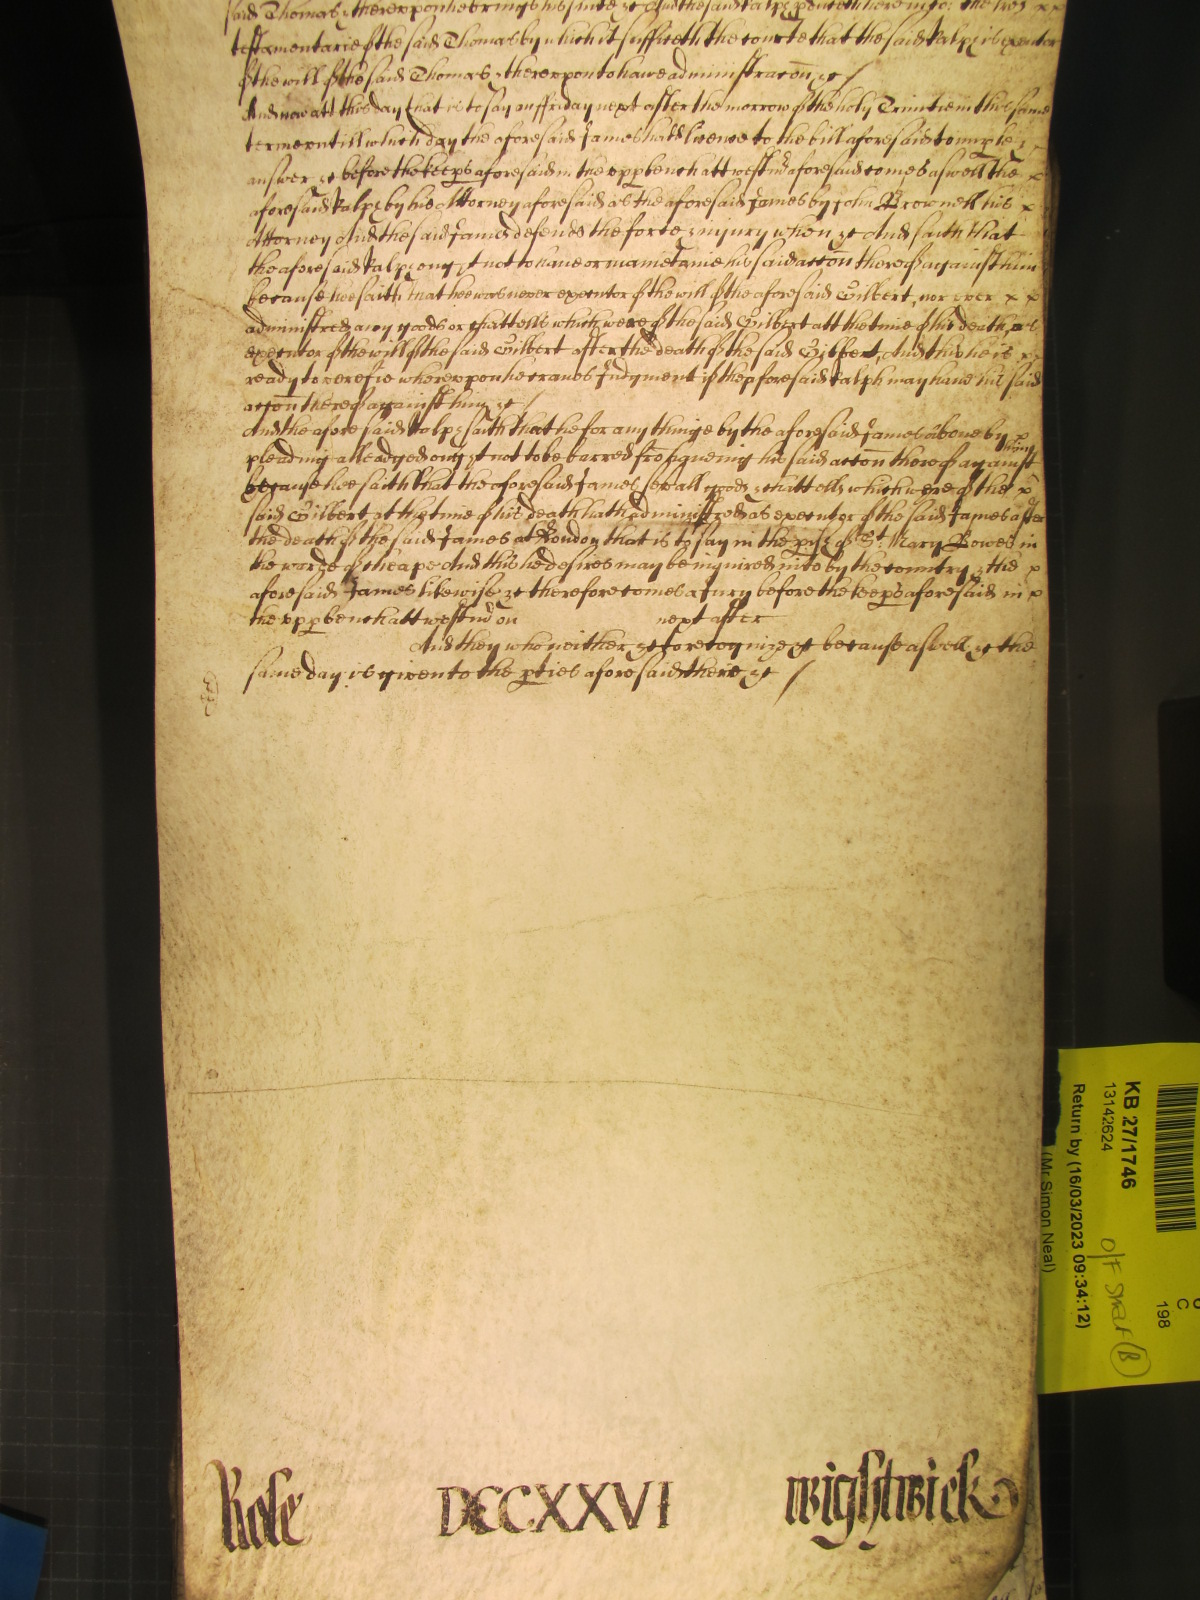 said Thomas & thereupon he brings his suite &c And the said Ralph
testamentarie of the said Thomas by which it sufficeth the courte that the said Ralph is executor
of the will of the said Thomas & thereupon to have administracon &c /
And now att this day that is to say on ffriday next after the morrow of the holy Trinitie in this same
terme untill which day the aforesaid James hath licence to the bill aforesaid to imple &
answer &c before the keeps aforesaid in the upp bench att westmr aforesaid comes aswell the x
aforesaid Ralph by his Attorney aforesaid as the aforesaid James by John Brownell his x
Attorney And the said James defends the force & injury when &c And saith that
the aforesaid Ralph ought not to have or mainetaine his said accon thereof against him
because hee saith that hee was never executor of the will of the aforesaid Gilbert, nor ever x x
administred any goods or chattells which were of the said Gilbert att the time of his death as
executor of the will of the said Gilbert after the death of the said Gilbert, And this he is x
ready to verefie whereupon he craves Judgment if the aforesaid Ralph may have his said
accon thereof against him &c /
And the aforesaid Ralph saith that he for any thinge by the aforesaid James above by x
pleading alleadged ought not to be barred from haveing his said accon thereof against him
because hee saith that the aforesaid James sevall goods & chattells which were of the x
said Gilbert at the time of his death hath administred as executor of the said James after
the death of the said James at London that is to say in the pish of St Mary Bowes in
the warde of cheape And this he desires may be inquired into by the country & the x
aforesaid James likewise &c therefore comes a Jury before the keeps aforesaid in x
the upp bench att westmr on next after
And they who neither &c to recognize &c because aswell &c the
same day is given to the pties aforesaid there &c /
Role DCCXXVI Wightwick
KB 27/1746
13142624
Return by (16/03/2023 09:34:12)
(Mr Simon Neal)
C
198